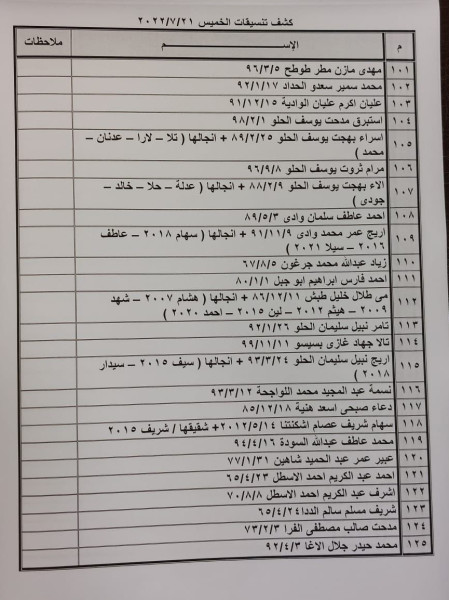 كشف تنسيقات الخميس ٢٠٢٢/٧/٢١
م الإســـم ملاحظات
١٠١ مهدى مازن مطر طوطح ٩٦/٣/٥
١٠٢ محمد سمير سعدو الحداد ٩٢/١/١٧
١٠٣ عليان اكرم عليان الوادية ٩١/١٢/١٥
١٠٤ استبرق مدحت يوسف الحلو ٩٨/٢/١
١٠٥ اسراء بهجت يوسف الحلو ٨٩/٢/٢٥ + انجالها ( تلا – لارا – عدنان –
محمد )
١٠٦ مرام ثروت يوسف الحلو ٩٦/٩/٨
١٠٧ الاء بهجت يوسف الحلو ٨٨/٢/٩ + انجالها ( عدلة – حلا – خالد –
جودى )
١٠٨ احمد عاطف سلمان وادى ٨٩/٥/٣
١٠٩ اريج عمر محمد وادى ٩١/١١/٩ + انجالها ( سهام ٢٠١٨ – عاطف
٢٠١٦ – سيلا ٢٠٢١ )
١١٠ زياد عبدالله محمد جرغون ٦٧/٨/٥
١١١ احمد فارس ابراهيم ابو جبل ٨٠/١/١
١١٢ مى طلال خليل طبش ٨٦/١٢/١١ + انجالها ( هشام ٢٠٠٧ – شهد
٢٠٠٩ – هيثم ٢٠١٢ – لين ٢٠١٥ – احمد ٢٠٢٠ )
١١٣ تامر نبيل سليمان الحلو ٩٢/١/٢٦
١١٤ تالا جهاد غازى بسيسو ٩٩/١١/١١
١١٥ اريج نبيل سليمان الحلو ٩٣/٣/٢٤ + انجالها ( سيف ٢٠١٥ – سيدار
٢٠١٨ )
١١٦ نسمة عبد المجيد محمد اللواجحة ٩٣/٣/١٢
١١٧ دعاء صبحى اسعد هنية ٨٥/١٢/١٨
١١٨ سهام شريف عصام اشكنتنا ٢٠١٢/٥/١٤+ شقيقها / شريف ٢٠١٥
١١٩ محمد عاطف عبدالله السودة ٩٤/٤/١٦
١٢٠ عبير عمر عبد الحميد شاهين ٧٧/١/٣١
١٢١ احمد عبد الكريم احمد الاسطل ٦٥/٤/٢٣
١٢٢ اشرف عبد الكريم احمد الاسطل ٧٠/٨/٨
١٢٣ شريف مسلم سالم الددا ٦٥/٤/٢٤
١٢٤ مدحت صالب مصطفى الفرا ٧٣/٢/٣
١٢٥ محمد حيدر جلال الاغا ٩٢/٤/٣